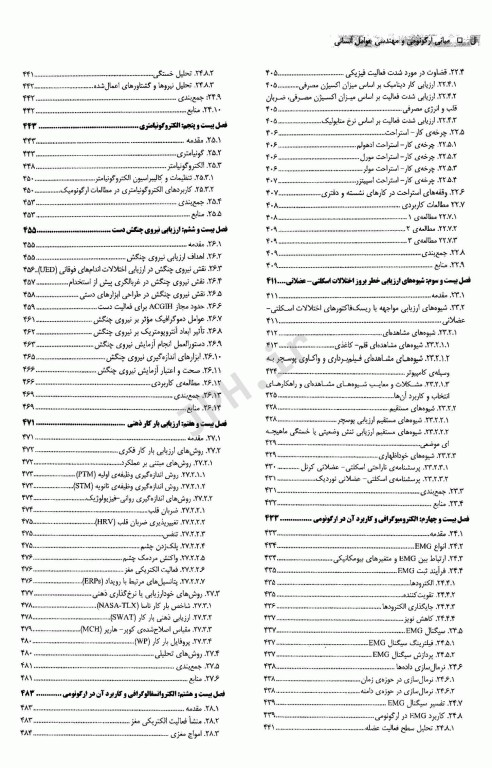 ل □ مبانی ارگونومی و مهندسی عوامل انسانی
۲۲.۴. قضاوت در مورد شدت فعالیت فیزیکی ۴۰۵
۲۲.۴.۱. ارزیابی کار دینامیک بر اساس میزان اکسیژن مصرفی ۴۰۵
۲۲.۴.۲. ارزیابی شدت فعالیت بر اساس میزان اکسیژن مصرفی، ضربان
قلب و انرژی مصرفی ۴۰۵
۲۲.۴.۳. ارزیابی شدت فعالیت بر اساس نرخ متابولیک ۴۰۵
۲۲.۵. چرخه‌ی کار- استراحت ۴۰۶
۲۲.۵.۱. چرخه‌ی کار- استراحت ادهولم ۴۰۶
۲۲.۵.۲. چرخه‌ی کار- استراحت مورل ۴۰۶
۲۲.۵.۳. چرخه‌ی کار- استراحت مولر ۴۰۶
۲۲.۵.۴. چرخه‌ی کار- استراحت اسپیتزر ۴۰۶
۲۲.۶. وقفه‌های استراحت در کارهای نشسته و دفتری ۴۰۷
۲۲.۷. مطالعات کاربردی ۴۰۸
۲۲.۷.۱. مطالعه‌ی ۱ ۴۰۸
۲۲.۷.۲. مطالعه‌ی ۲ ۴۰۸
۲۲.۷.۳. مطالعه‌ی ۳ ۴۰۹
۲۲.۸. جمع‌بندی ۴۰۹
۲۲.۹. منابع ۴۰۹
فصل بیست و سوم: شیوه‌های ارزیابی خطر بروز اختلالات اسکلتی- عضلانی ۴۱۱
۲۳.۱. مقدمه ۴۱۱
۲۳.۲. شیوه‌های ارزیابی مواجهه با ریسک‌فاکتورهای اختلالات اسکلتی-
عضلانی ۴۱۱
۲۳.۲.۱. شیوه‌های مشاهده‌ای ۴۱۲
۲۳.۲.۱.۱. شیوه‌های مشاهده‌ای قلم- کاغذی ۴۱۳
۲۳.۲.۱.۲. شیوه‌های مشاهده‌ای فیلم‌برداری و واکاوی پوسچر به
وسیله‌ی کامپیوتر ۴۲۴
۲۳.۲.۱.۳. مشکلات و معایب شیوه‌های مشاهده‌ای و راهکارهای
انتخاب و کاربرد آن‌ها ۴۲۵
۲۳.۲.۲. شیوه‌های مستقیم ۴۲۸
۲۳.۲.۲.۱. شیوه‌های مستقیم ارزیابی پوسچر ۴۲۸
۲۳.۲.۲.۲. شیوه‌های مستقیم ارزیابی تنش وضعیتی یا خستگی ماهیچه
ای موضعی ۴۲۹
۲۳.۲.۳. شیوه‌های خوداظهاری ۴۲۹
۲۳.۲.۳.۱. پرسشنامه‌ی ناراحتی اسکلتی- عضلانی کرنل ۴۳۰
۲۳.۲.۳.۲. پرسشنامه‌ی اسکلتی- عضلانی نوردیک ۴۳۱
۲۳.۳. جمع‌بندی ۴۳۱
۲۳.۴. منابع ۴۳۲
فصل بیست و چهارم: الکترومیوگرافی و کاربرد آن در ارگونومی ۴۳۳
۲۴.۱. مقدمه ۴۳۳
۲۴.۲. انواع EMG ۴۳۴
۲۴.۳. ارتباط بین EMG و متغیرهای بیومکانیکی ۴۳۴
۲۴.۴. فرآیند ثبت EMG ۴۳۵
۲۴.۴.۱. الکترودها ۴۳۵
۲۴.۴.۲. تقویت‌کننده ۴۳۵
۲۴.۴.۳. جایگذاری الکترودها ۴۳۶
۲۴.۴.۴. کاهش نویز ۴۳۷
۲۴.۵. سیگنال EMG ۴۳۷
۲۴.۵.۱. فیلترینگ سیگنال EMG ۴۳۷
۲۴.۵.۲. پردازش سیگنال EMG ۴۳۷
۲۴.۶. نرمال‌سازی داده‌ها ۴۳۸
۲۴.۶.۱. نرمال‌سازی در حوزه‌ی زمان ۴۳۸
۲۴.۶.۲. نرمال‌سازی در حوزه‌ی دامنه ۴۳۸
۲۴.۷. تفسیر سیگنال EMG ۴۳۹
۲۴.۸. کاربرد EMG در ارگونومی ۴۳۹
۲۴.۸.۱. تحلیل سطح فعالیت عضله ۴۴۱
۲۴.۸.۲. تحلیل خستگی ۴۴۱
۲۴.۸.۳. تحلیل نیروها و گشتاورهای اعمال‌شده ۴۴۲
۲۴.۹. جمع‌بندی ۴۴۲
۲۴.۱۰. منابع ۴۴۲
فصل بیست و پنجم: الکتروگونیامتری ۴۴۳
۲۵.۱. مقدمه ۴۴۳
۲۵.۲. گونیامتری ۴۴۳
۲۵.۳. الکتروگونیامتر ۴۴۸
۲۵.۳.۱. تنظیمات و کالیبراسیون الکتروگونیامتر ۴۵۰
۲۵.۳.۲. کاربردهای الکتروگونیامتری در مطالعات ارگونومیک ۴۵۰
۲۵.۴. جمع‌بندی ۴۵۳
۲۵.۵. منابع ۴۵۳
فصل بیست و ششم: ارزیابی نیروی چنگش دست ۴۵۵
۲۶.۱. مقدمه ۴۵۵
۲۶.۲. اهداف ارزیابی نیروی چنگش ۴۵۵
۲۶.۳. نقش نیروی چنگش در ارزیابی اختلالات اندام‌های فوقانی (UED) ۴۵۶
۲۶.۴. نقش نیروی چنگش در غربالگری پیش از استخدام ۴۵۷
۲۶.۵. نقش نیروی چنگش در طراحی ابزارهای دستی ۴۵۸
۲۶.۶. حدود مجاز ACGIH برای فعالیت دست ۴۵۹
۲۶.۷. عوامل دموگرافیک مؤثر بر نیروی چنگش ۴۶۱
۲۶.۸. تأثیر ابعاد آنتروپومتریک بر نیروی چنگش ۴۶۲
۲۶.۹. دستورالعمل انجام آزمایش نیروی چنگش ۴۶۳
۲۶.۱۰. ابزارهای اندازه‌گیری نیروی چنگش ۴۶۵
۲۶.۱۱. صحت و اعتبار آزمایش نیروی چنگش ۴۶۶
۲۶.۱۲. مطالعه‌ی کاربردی ۴۶۶
۲۶.۱۳. جمع‌بندی ۴۶۹
۲۶.۱۴. منابع ۴۶۹
فصل بیست و هفتم: ارزیابی بار کار ذهنی ۴۷۱
۲۷.۱. مقدمه ۴۷۱
۲۷.۲. روش‌های ارزیابی بار کار فکری ۴۷۲
۲۷.۲.۱. روش‌های مبتنی بر عملکرد ۴۷۲
۲۷.۲.۱.۱. روش اندازه‌گیری وظفه‌ی اولیه (PTM) ۴۷۳
۲۷.۲.۱.۲. روش اندازه‌گیری وظفه‌ی ثانویه (STM) ۴۷۳
۲۷.۲.۲. روش‌های اندازه‌گیری روانی-فیزیولوژیک ۴۷۴
۲۷.۲.۲.۱. ضربان قلب ۴۷۴
۲۷.۲.۲.۲. تغییرپذیری ضربان قلب (HRV) ۴۷۵
۲۷.۲.۲.۳. تنفس ۴۷۵
۲۷.۲.۲.۴. پلک‌زدن چشم ۴۷۵
۲۷.۲.۲.۵. واکنش مردمک چشم ۴۷۶
۲۷.۲.۲.۶. فعالیت الکتریکی مغز ۴۷۶
۲۷.۲.۲.۷. پتانسیل‌های مرتبط با رویداد (ERPs) ۴۷۶
۲۷.۳. روش‌های خودارزیابی یا نرخ‌گذاری ذهنی ۴۷۷
۲۷.۳.۱. شاخص بار کار ناسا (NASA-TLX) ۴۷۸
۲۷.۳.۲. ارزیابی ذهنی بار کار (SWAT) ۴۷۸
۲۷.۳.۳. مقیاس اصلاح‌شده‌ی کوپر- هارپر (MCH) ۴۷۹
۲۷.۳.۴. پروفایل بار کار (WP) ۴۸۰
۲۷.۴. روش‌های تحلیلی ۴۸۰
۲۷.۵. جمع‌بندی ۴۸۱
۲۷.۶. منابع ۴۸۱
فصل بیست و هشتم: الکتروانسفالوگرافی و کاربرد آن در ارگونومی ۴۸۳
۲۸.۱. مقدمه ۴۸۳
۲۸.۲. منشأ فعالیت الکتریکی مغز ۴۸۳
۲۸.۳. امواج مغزی ۴۸۴